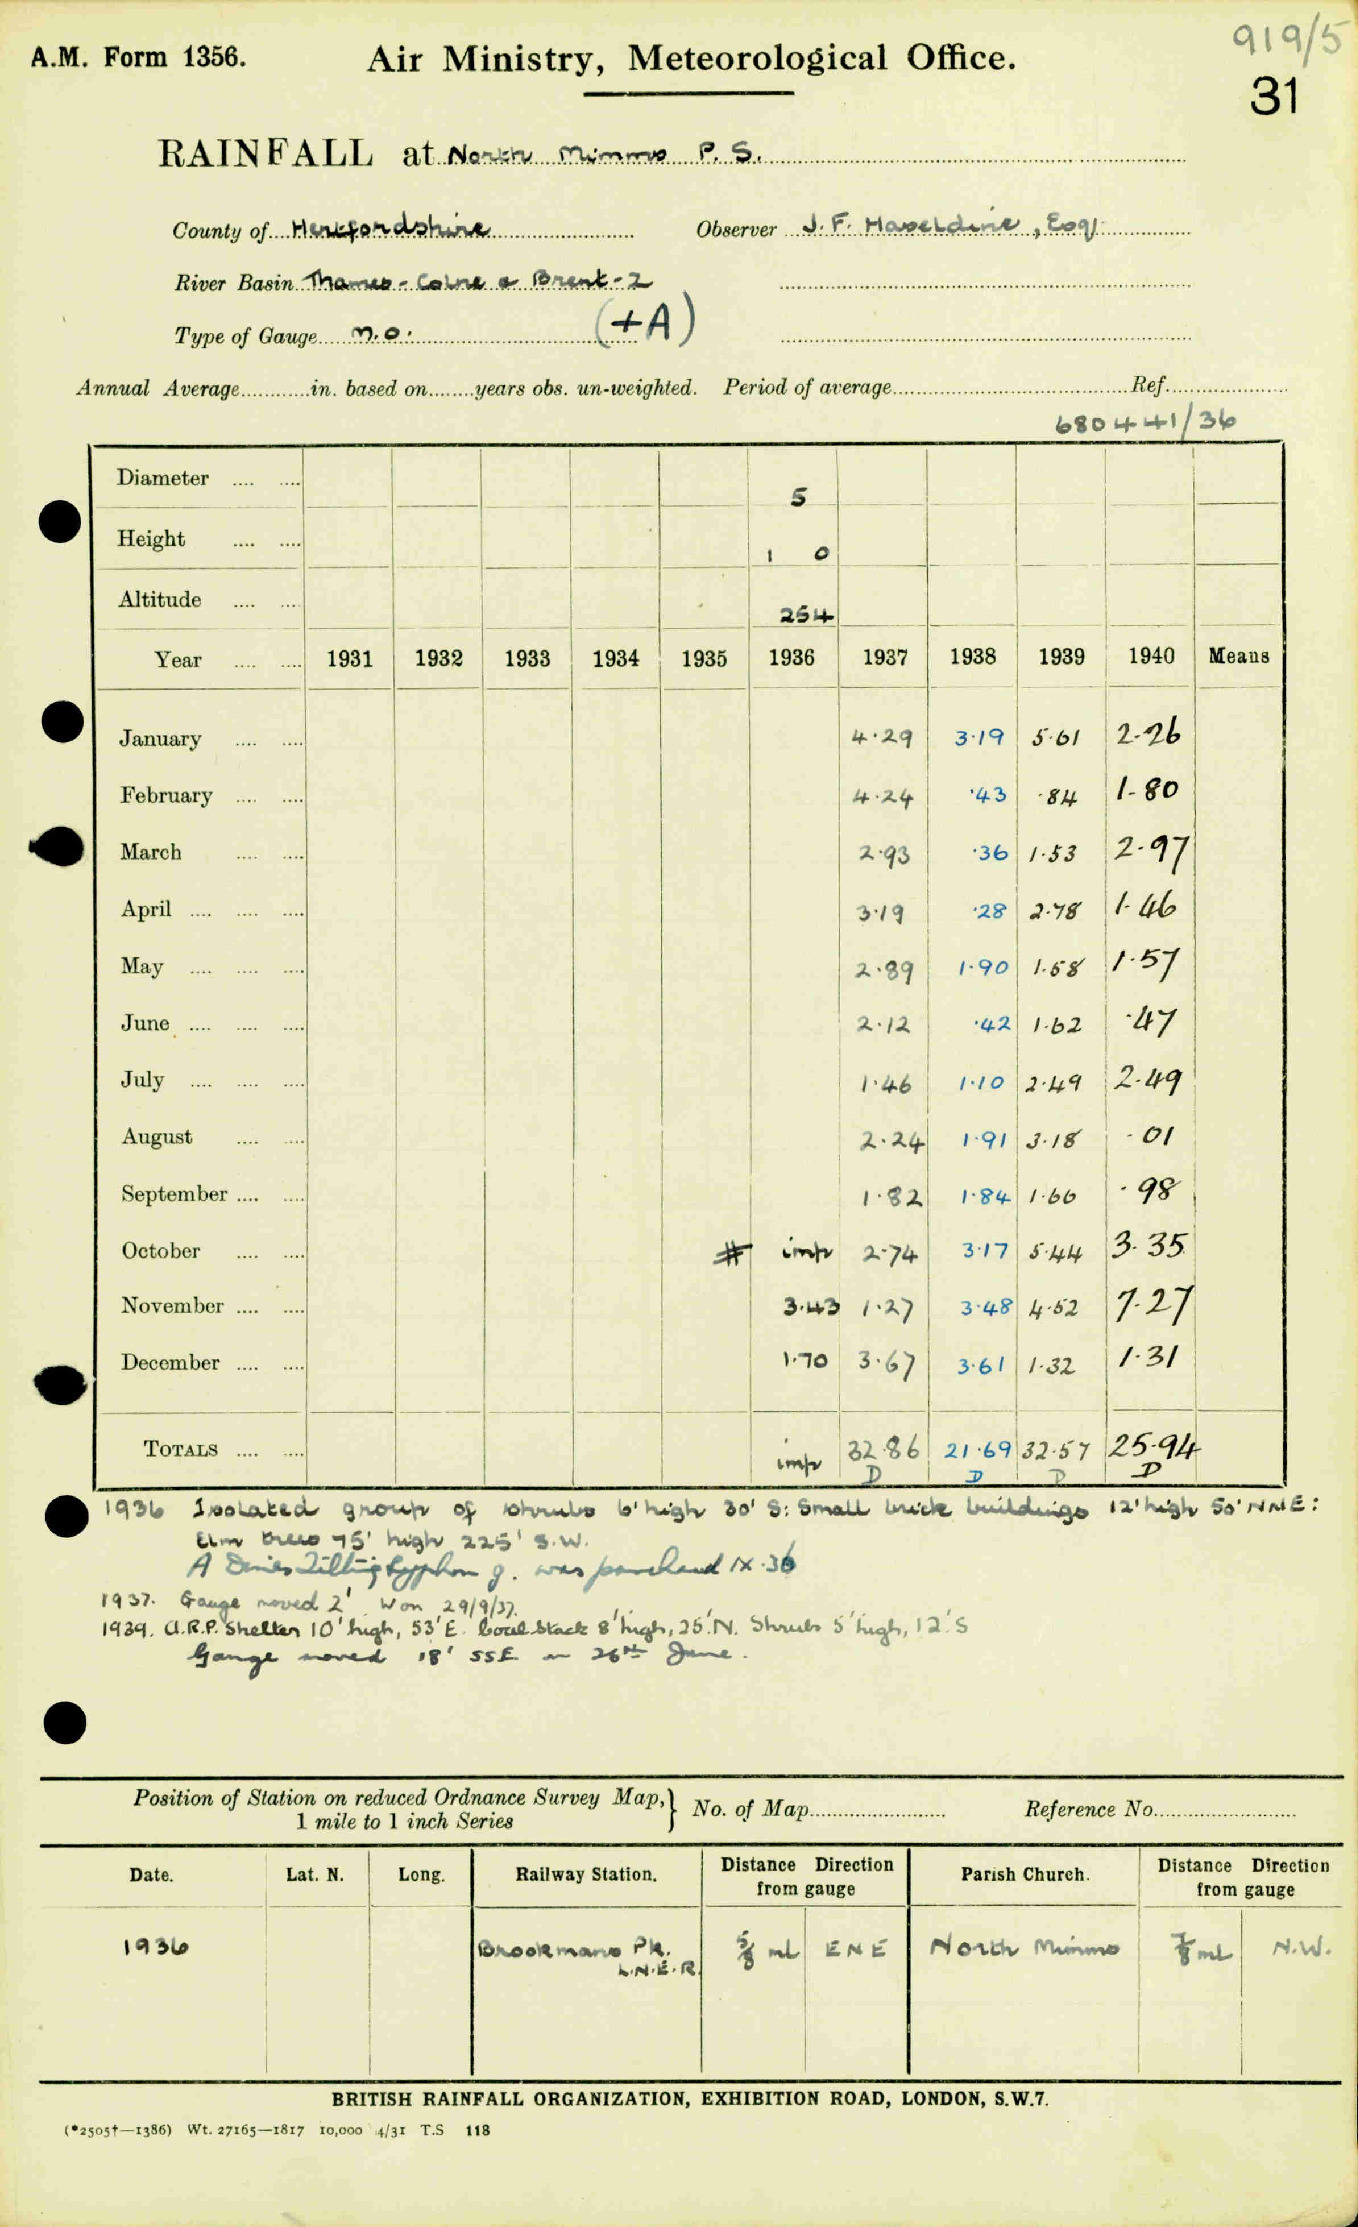 919/5
A.M. Form 1356. Air Ministry, Meteorological Office.
31
RAINFALL at North Mimms P. S.
County of Hertfordshire Observer J. F. Haseldine, Esq.
River Basin Thames - Colne & Brent - 2
Type of Gauge M.O. (+A)
Annual Average in. based on years obs. un-weighted. Period of average Ref.
680441/36
Diameter 5
Height 1 0
Altitude 254
Year 1931 1932 1933 1934 1935 1936 1937 1938 1939 1940 Means
January 4.29 3.19 5.61 2.26
February 4.24 .43 .84 1.80
March 2.93 .36 1.53 2.97
April 3.19 .28 2.78 1.46
May 2.89 1.90 1.58 1.57
June 2.12 .42 1.62 .47
July 1.46 1.10 2.49 2.49
August 2.24 1.91 3.18 .01
September 1.82 1.84 1.66 .98
October # imp 2.74 3.17 5.44 3.35
November 3.43 1.27 3.48 4.52 7.27
December 1.70 3.67 3.61 1.32 1.31
TOTALS imp 32.86 21.69 32.57 25.94
D D D D
1936 Isolated group of shrubs 6' high 30' S: Small brick buildings 12' high 50' NNE:
Elm trees 75' high 225' S.W.
A Dines Tilting Syphon g. was purchased IX.36
1937. Gauge moved 2' W on 29/9/37.
1939. A.R.P. Shelter 10' high, 53' E. Coal stack 8' high, 25' N. Shrubs 5' high, 12' S
Gauge moved 18' SSE on 26th June.
Position of Station on reduced Ordnance Survey Map, } No. of Map Reference No.
1 mile to 1 inch Series
Date. Lat. N. Long. Railway Station. Distance Direction from gauge Parish Church. Distance Direction from gauge
1936 Brookmans Pk. L.N.E.R. 5/8 ml ENE North Mimms 7/8 ml N.W.
BRITISH RAINFALL ORGANIZATION, EXHIBITION ROAD, LONDON, S.W.7.
(*2505†—1386) Wt. 27165—1817 10,000 4/31 T.S 118